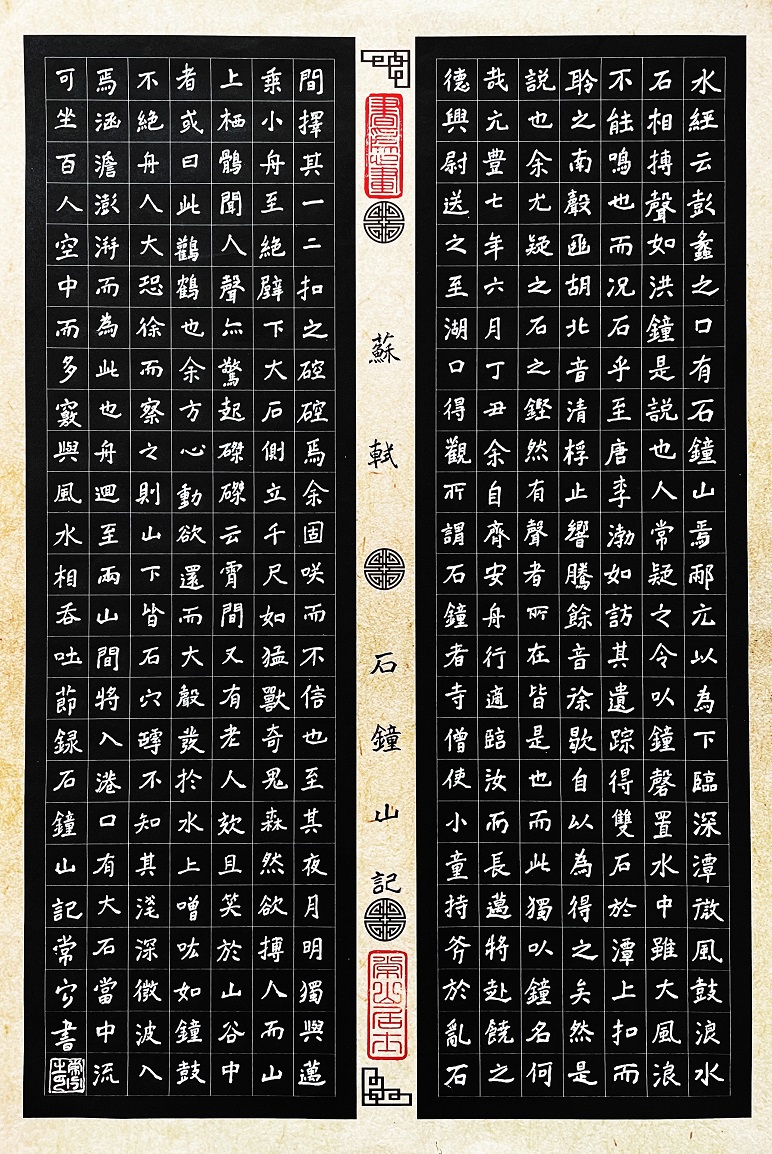 水經云彭蠡之口有石鐘山焉酈元以為下臨深潭微風鼓浪水
石相搏聲如洪鐘是說也人常疑之今以鐘磬置水中雖大風浪
不能鳴也而况石乎至唐李渤如訪其遺踪得雙石於潭上扣而
聆之南聲函胡北音清桴止響騰餘音徐歇自以為得之矣然是
説也余尤疑之石之鏗然有聲者所在皆是也而此獨以鐘名何
哉元豊七年六月丁丑余自齊安舟行適臨汝而長邁將赴饒之
德興尉送之至湖口得觀所謂石鐘者寺僧使小童持斧於亂石
蘇軾 石鐘山記
常山居士
間擇其一二扣之硿硿焉余固咲而不信也至其夜月明獨與邁
乘小舟至絕壁下大石側立千尺如猛獸奇鬼森然欲搏人而山
上栖鶻聞人聲亦驚起磔磔云霄間又有老人欬且笑於山谷中
者或曰此鸛鶴也余方心動欲還而大聲發於水上噌吰如鐘鼓
不絕舟人大恐徐而察之則山下皆石穴罅不知其淺深微波入
焉涵澹澎湃而為此也舟迴至兩山間將入港口有大石當中流
可坐百人空中而多竅與風水相吞吐節録石鐘山記常宁書